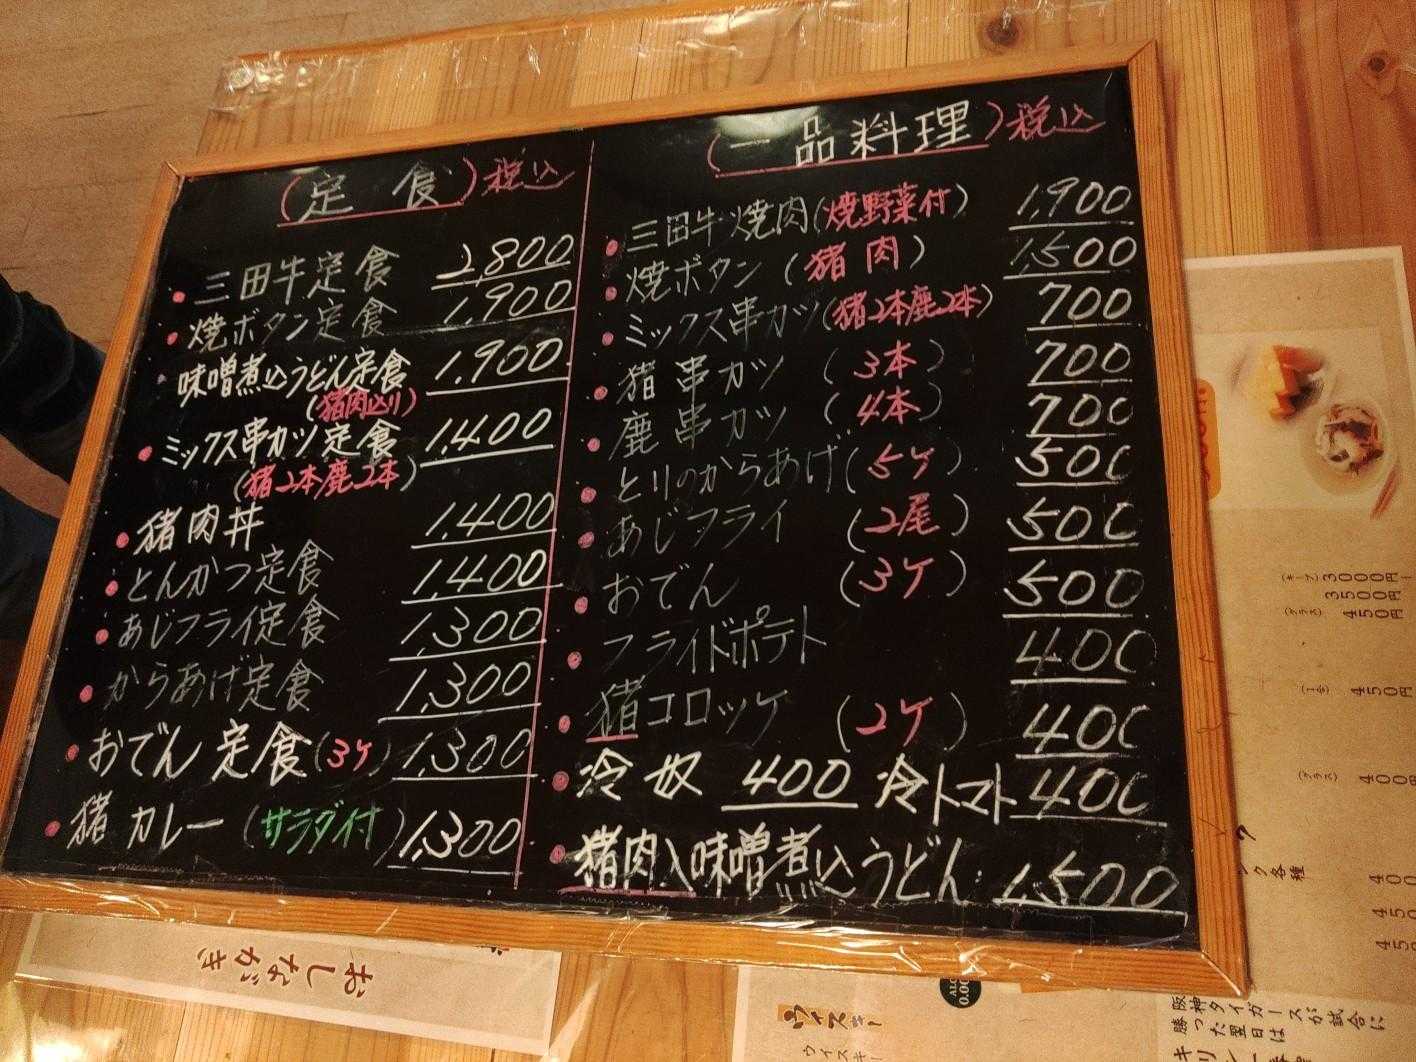 (定食)税込
三田牛定食 2,800
焼ボタン定食 1,900
味噌煮込うどん定食 1,900
(猪肉込り)
ミックス串カツ定食 1,400
(猪2本鹿2本)
猪肉丼 1,400
とんかつ定食 1,400
あじフライ定食 1,300
からあげ定食 1,300
おでん定食(3ケ) 1,300
猪カレー(サラダ付) 1,300
(一品料理)税込
三田牛焼肉(焼野菜付) 1,900
焼ボタン(猪肉) 1,500
ミックス串カツ(猪2本鹿2本) 700
猪串カツ(3本) 700
鹿串カツ(4本) 700
とりのからあげ(5ケ) 500
あじフライ(2尾) 500
おでん(3ケ) 500
フライドポテト 400
猪コロッケ(2ケ) 400
冷奴 400 冷トマト 400
猪肉入味噌煮込うどん 1,500
おしながき
(キープ)3000円
3500円
(グラス)450円
450円
(グラス)400円
ク各種
400
450
450
ウイスキー
ウイスキー
0.00
阪神タイガースが試合に
勝った翌日は
キリン